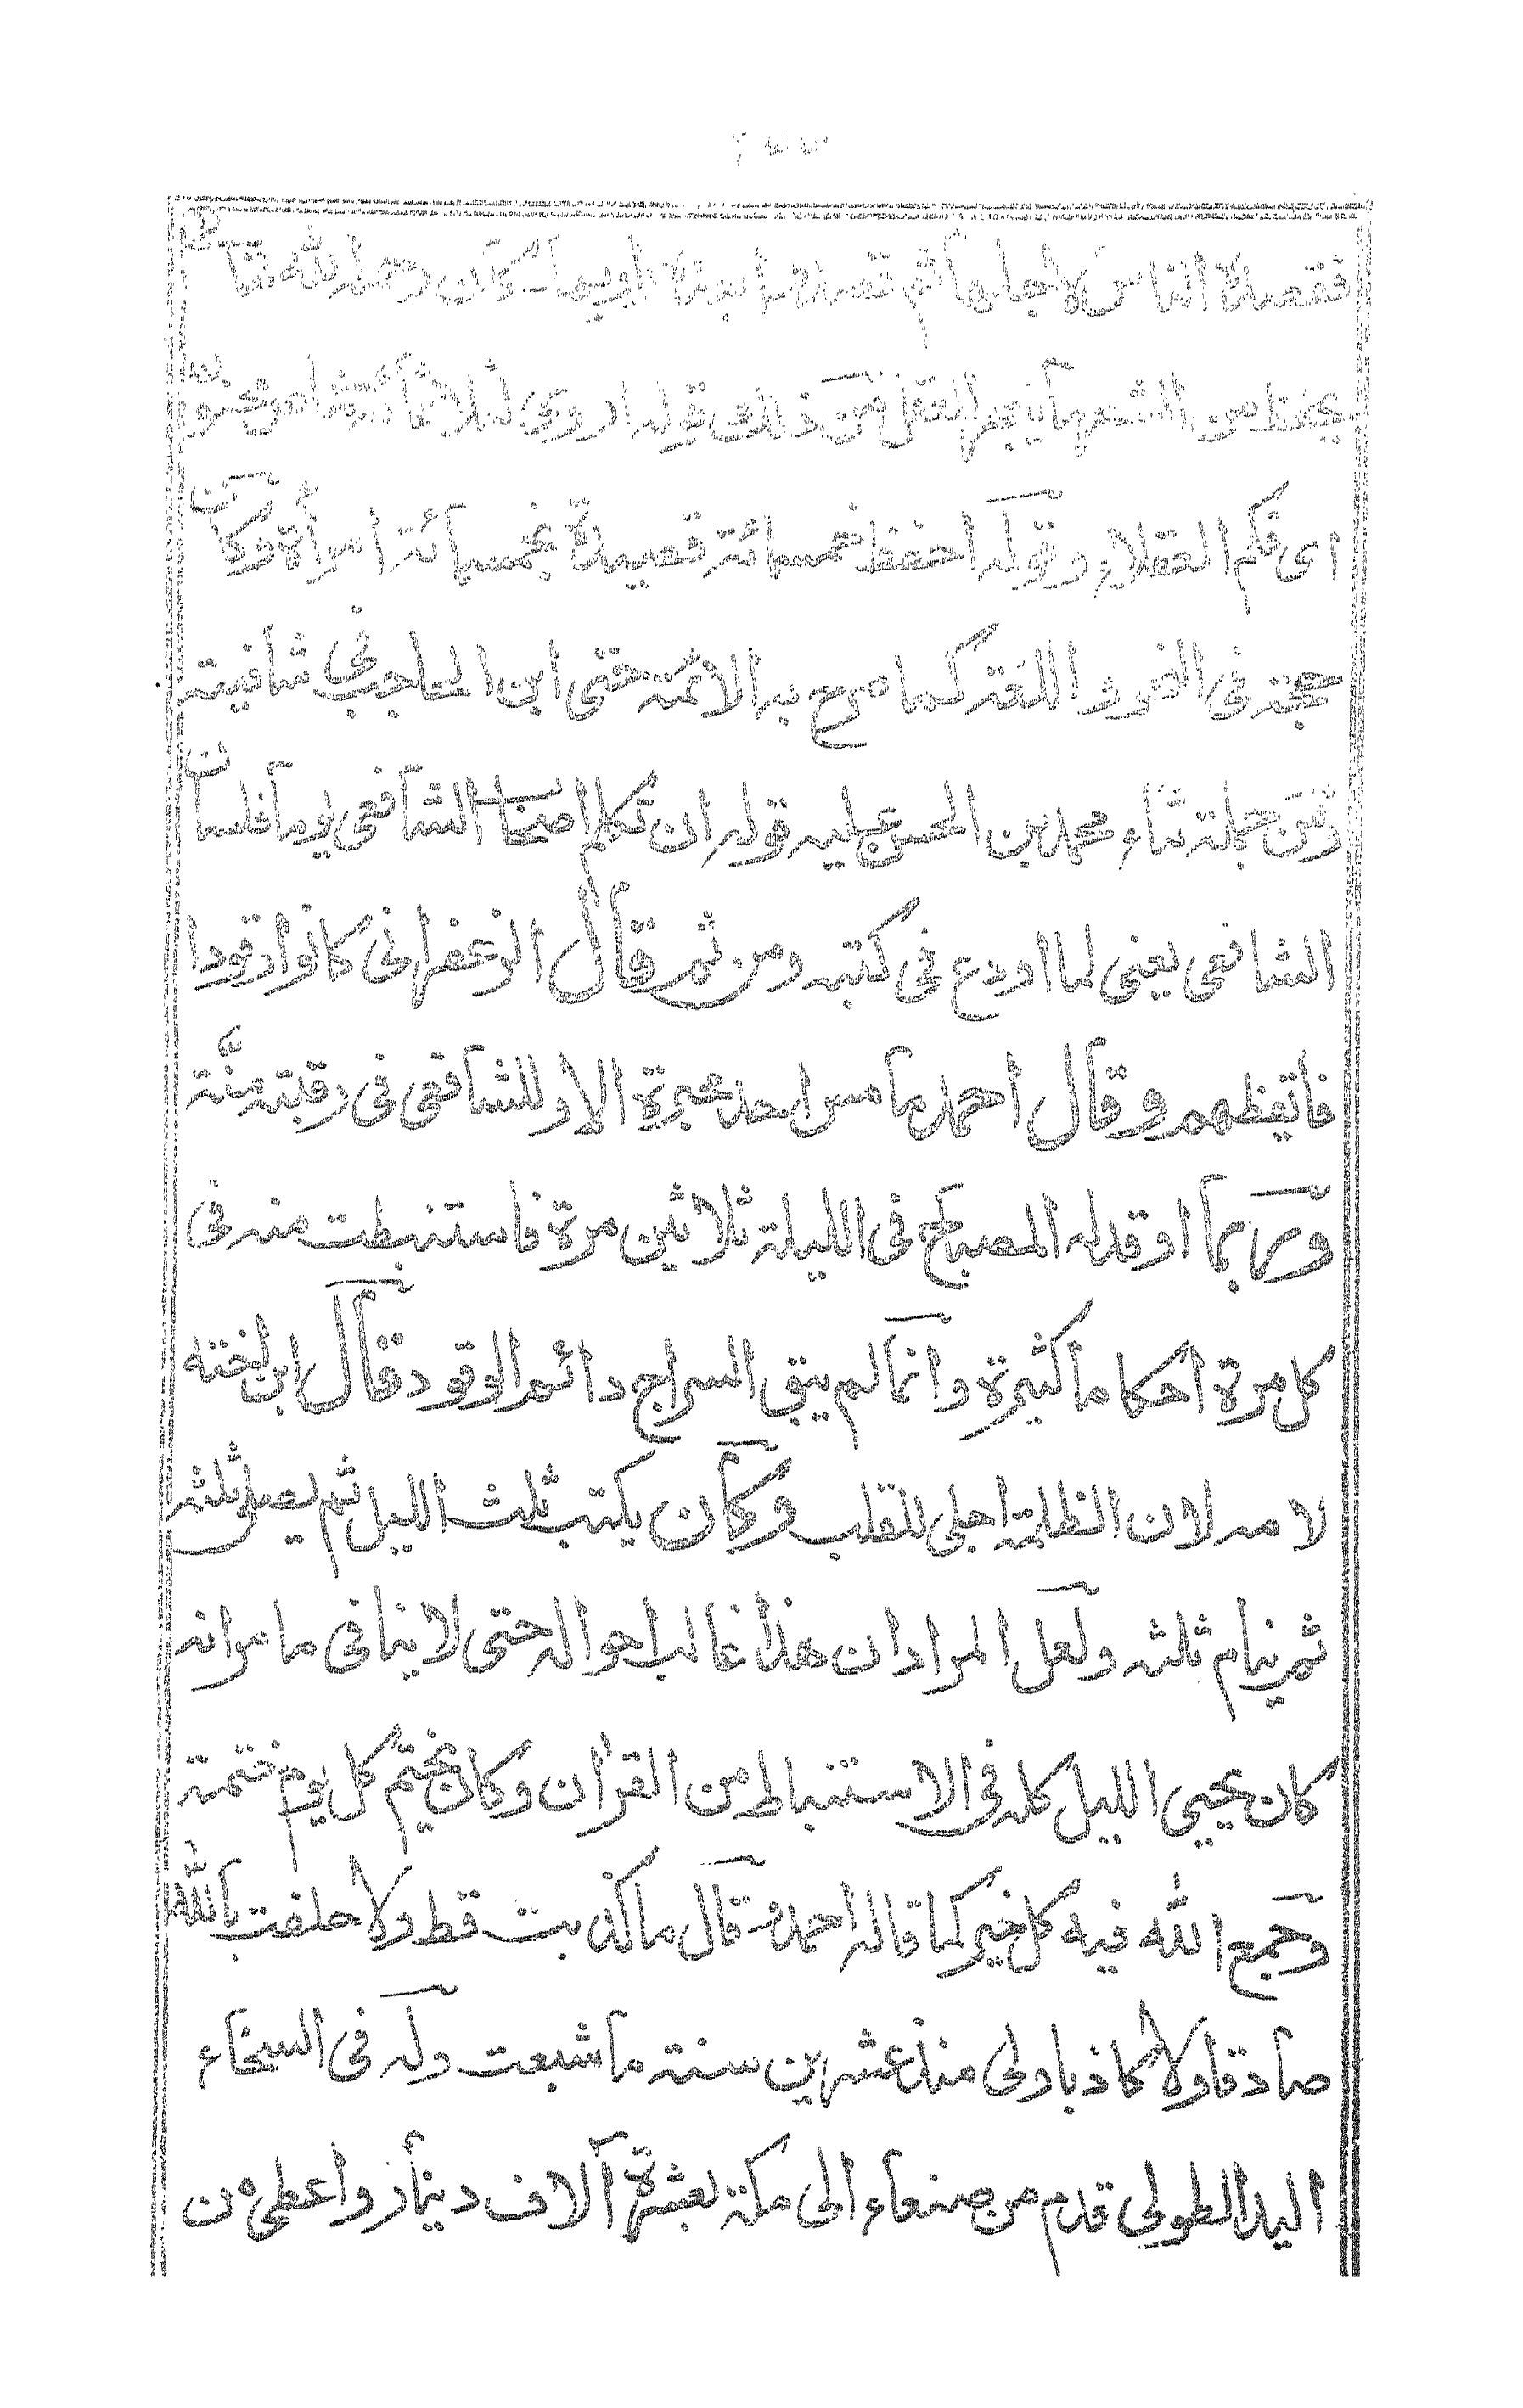 فقصده الناس لاجلها ثم تصدى رحمه الله تعالى
يحفظ من الشعر ما يبهر العقل من ذلك قوله اروى لثلاثمائة شاعر مجنون
اى فكم العقلاء وقوله احفظ خمسمائة قصيدة بخمسمائة امرأة وكان
حجة فى النحو واللغة كما صرح به الائمة حتى ابن الحاجب فى شافيته
ومن جملة ثناء محمد بن الحسن عليه قوله ان تكلم اصحاب الشافعى يوما فلسان
الشافعى يعنى لما اودع فى كتبه ومن ثمر قال الزعفرانى كانوا رقودا
فايقظهم وقال احمد ما مس احد محبرة الا وللشافعى فى رقبته منّة
وربما اوقد له المصباح فى الليلة ثلاثين مرة فاستنبطت منه فى
كل مرة احكاما كثيرة وانما لم يبق السراج دائم الوقود قال ابن اخته
لامه لان الظلمة اجلى للقلب وكان يكتب ثلث الليل ثم يصلى ثلثه
ثم ينام ثلثه ولعل المراد ان هذا غالب احواله حتى لا ينافى ما مر انه
كان يحيى الليل كله فى الاستنباط من القرآن وكان يختم كل يوم ختمة
وجمع الله فيه كل خير كما قاله احمد وقال ما كذبت قط ولا حلفت بالله
صادقا ولا كاذبا ولى منذ عشرين سنة ما شبعت وله فى السخاء
اليد الطولى قدم من صنعاء الى مكة بعشرة آلاف دينار واعطى من